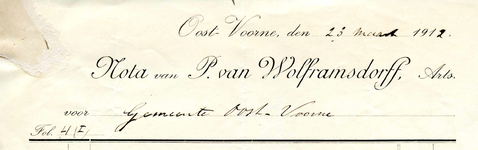 Oost-Voorne, den 23 maart 1912.
Nota van P. van Wolframsdorff, Arts.
voor Gemeente Oost-Voorne
Fol. 4 (I)